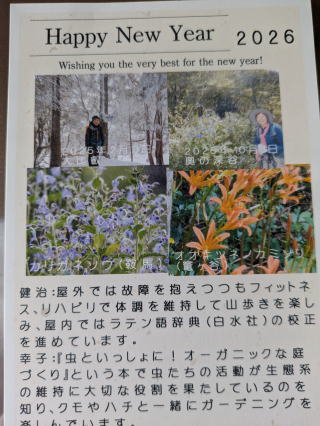 Happy New Year 2026
Wishing you the very best for the new year!
2025年2月
2025年10月
奥の深谷
カリガネソウ(敦馬)
オオキツネノカミソリ
健治:屋外では故障を抱えつつもフィットネ
ス、リハビリで体調を維持して山歩きを楽し
み、屋内ではラテン語辞典(白水社)の校正
を進めています。
幸子:『虫といっしょに!オーガニックな庭
づくり』という本で虫たちの活動が生態系
の維持に大切な役割を果たしているのを
知り、クモやハチと一緒にガーデニングを
楽しんでいます。